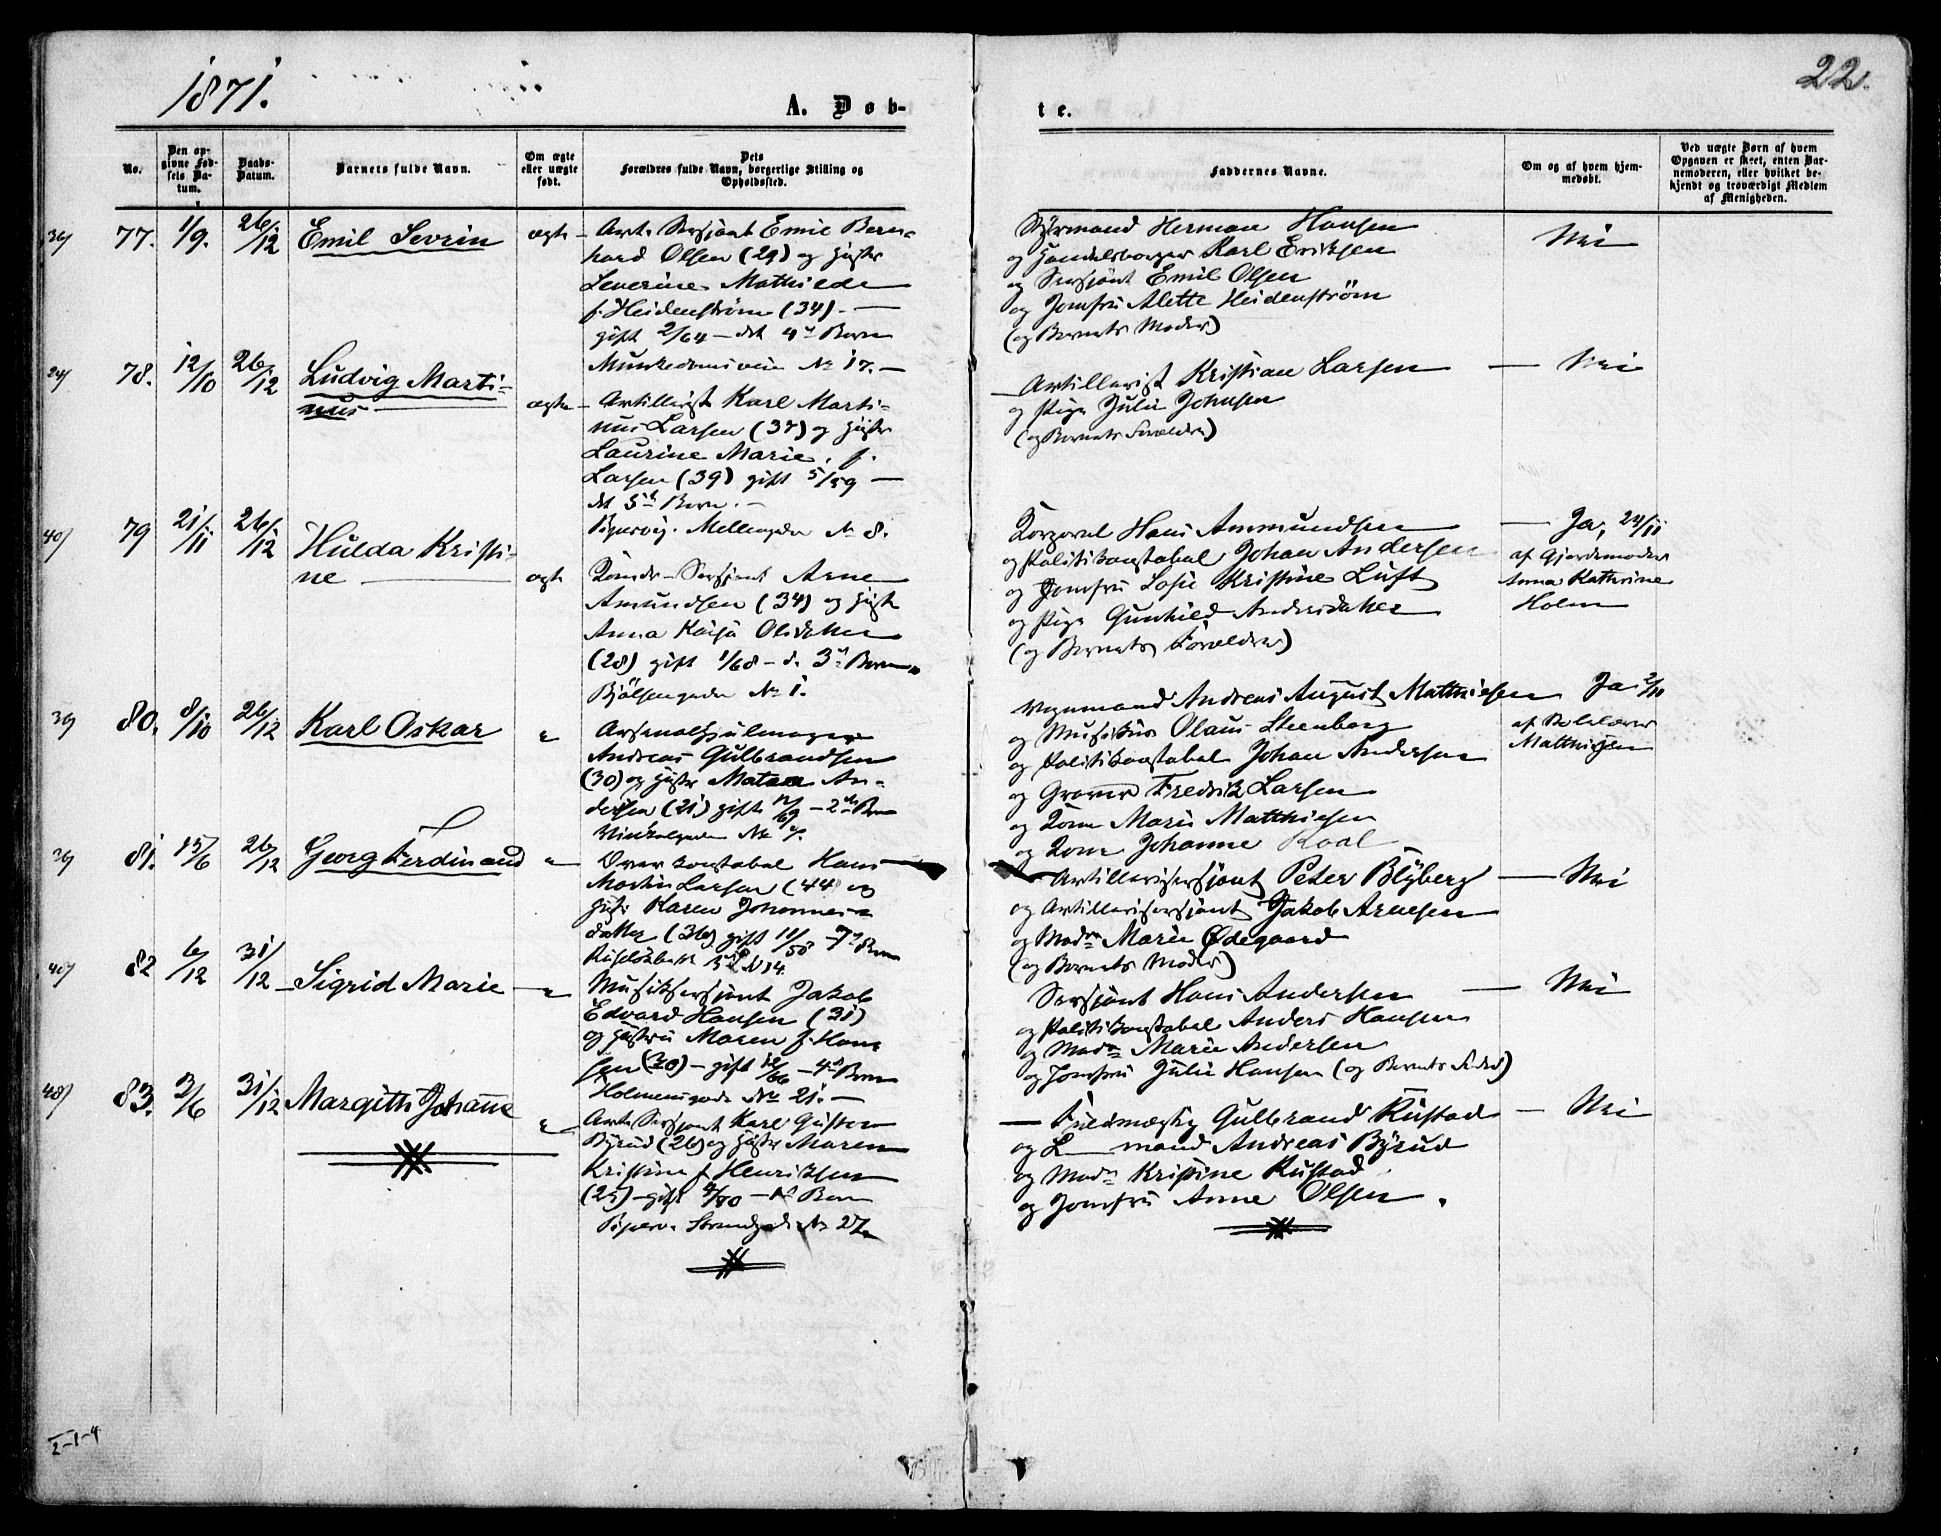 1871.
A. Døb-
te.
22.
No.
Den op-
givne Fød-
sels Da-
tum.
Daabs-
Datum.
Barnets fulde Navn.
Om ægte
eller uægte
født.
Dets
Forældres fulde Navn, borgerlige Stilling og
Opholdssted.
Faddernes Navne.
Om og af hvem hjem-
medøbt.
Ved uægte Børn af hvem
Opgaven er skeet, enten Bar-
nemoderen, eller hvilket be-
kjendt og troværdigt Medlem
af Menigheden.
77. 1/9. 26/12 Emil Sevrin ægte
Art. Sersjant Emil Bern-
hard Olsen (29) og Hustr
Severine Mathilde
f. Heidenstrøm (34). —
gift 2/64 — det 4de Barn
Munkedamsvein No 17. —
Styrmand Herman Hansen
og Handelsborger Karl Eriksen
og Sersjant Emil Olsen
og Jomfru Alette Heidenstrøm
(og Barnets Moder)
Nei
78. 12/10 26/12 Ludvig Marti-
nus ægte
Artillerist Karl Marti-
nus Larsen (37) og Hustr
Laurine Marie, f.
Larsen (39) gift 5/59 —
det 5te Barn. —
Pipervig. Mellemgaden No 8.
Artillerist Kristian Larsen
og Pige Julie Johnsen
(og Barnets Forældre)
Nei
79 21/11 26/12 Hulda Kristi-
ne ægte
Sersjant Arne
Amundsen (34) og Hustr
Anna Kaisa Olsdatter
(28) gift 1/68 — d. 3de Barn
Bjølsengaden No 1.
Korporal Hans Ammundsen
og Politikonstabel Johan Andersen
og Jomfru Sofie Kristine Luft
og Pige Gunhild Andersdatter
(og Barnets Forældre)
Ja, 24/11
af Gjordemoder
Anna Kathrine
Holm
80. 8/10 26/12 Karl Oskar "
Arsenalhjulmager
Andreas Gulbrandsen
(30) og Hustr An-
dersen (21) gift 12/69 — 2det Barn
Vinkelgaden No
Vognmand Andreas August Matthiesen
og Musikus Olaus Steenberg
og Politikonstabel Johan Andersen
og Graver Fredrik Larsen
og Kone Marie Matthiesen
og Kone Johanne Roal
Ja
af Skolelærer
Matthiesen
81. 15/6 26/12 Georg Ferdinand "
Overkonstabel Hans
Martin Larsen (44) og
Hustr Karen Johannes-
datter (36) gift 11/58 — 7de Barn
Artillerisersjant Peter Blyberg
og Artillerisersjant Jakob Arnesen
og Madm Marie Ødegaard
(og Barnets Moder)
Nei
82 6/12 31/12 Sigrid Marie "
Musiksersjant Jakob
Edvard Hansen (31)
og Hustru Maren f. Han-
sen (30) — gift 12/66 — 4de Barn
Holmensgade No 21. —
Sersjant Hans Andersen
og Politikonstabel Anders Hansen
og Madm Marie Andersen
og Jomfru Julie Hansen (og Barnets Fader)
Nei
83. 3/6 31/12 Margitth Johanne "
Art. Sersjant Karl Gustav
Byrud (26) og Hustr Maren
Kristine f. Henriksen
(25) — gift 4/70 — Barn
Piperv. Strandgade No 27.
Fuldmægtig Gulbrand Rustad
og L mand Andreas Byrud
og Madm Kristine Rustad
og Jomfru Anne Olsen.
Nei
2-1-4